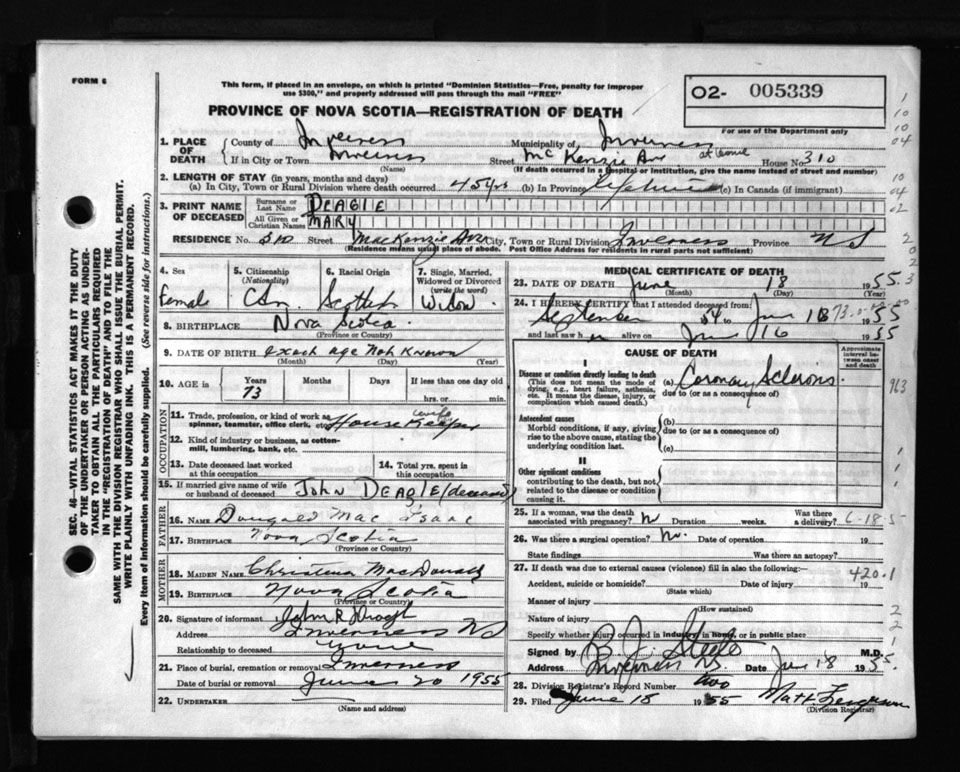 FORM 6
This form, if placed in an envelope, on which is printed "Dominion Statistics—Free, penalty for improper
use $300," and properly addressed will pass through the mail "FREE"
PROVINCE OF NOVA SCOTIA—REGISTRATION OF DEATH
O2- 005339
For use of the Department only
SEC. 46—VITAL STATISTICS ACT MAKES IT THE DUTY
OF THE UNDERTAKER OR PERSON ACTING AS UNDER-
TAKER TO OBTAIN ALL THE PARTICULARS REQUIRED
IN THE "REGISTRATION OF DEATH" AND TO FILE THE
SAME WITH THE DIVISION REGISTRAR WHO SHALL ISSUE THE BURIAL PERMIT.
WRITE PLAINLY WITH UNFADING INK. THIS IS A PERMANENT RECORD.
Every item of information should be carefully supplied. (See reverse side for instructions.)
1. PLACE OF DEATH
County of Inverness Municipality of Inverness
If in City or Town Inverness Street McKenzie Ave at home House No 310
(Name) (If death occurred in a hospital or institution, give the name instead of street and number)
2. LENGTH OF STAY (in years, months and days)
(a) In City, Town or Rural Division where death occurred 45 yrs (b) In Province Lifetime (c) In Canada (if immigrant)
3. PRINT NAME OF DECEASED
Surname or Last Name DEAGLE
All Given or Christian Names MARY
RESIDENCE No 310 Street MacKenzie Ave City, Town or Rural Division Inverness Province NS
(Residence means usual place of abode. Post Office Address for residents in rural parts not sufficient)
4. Sex
Female
5. Citizenship (Nationality)
Can
6. Racial Origin
Scottish
7. Single, Married, Widowed or Divorced (write the word)
Widow
8. BIRTHPLACE Nova Scotia
(Province or Country)
9. DATE OF BIRTH exact age Not Known
(Month) (Day) (Year)
10. AGE in Years 73 Months Days If less than one day old
hrs. or min.
OCCUPATION
11. Trade, profession, or kind of work as
spinner, teamster, office clerk, etc. House Keeper
12. Kind of industry or business, as cotton-
mill, lumbering, bank, etc.
13. Date deceased last worked
at this occupation
14. Total yrs. spent in
this occupation
15. If married give name of wife
or husband of deceased John DEAGLE (deceased)
FATHER
16. NAME Dougald Mac Isaac
17. BIRTHPLACE Nova Scotia
(Province or Country)
MOTHER
18. MAIDEN NAME Christena MacDonald
19. BIRTHPLACE Nova Scotia
(Province or Country)
20. Signature of informant John R
Address Inverness NS
Relationship to deceased
21. Place of burial, cremation or removal Inverness
Date of burial or removal June 20 1955
22. UNDERTAKER
(Name and address)
MEDICAL CERTIFICATE OF DEATH
23. DATE OF DEATH June 18 1955
(Month) (Day) (Year)
24. I HEREBY CERTIFY that I attended deceased from:
September 54 to June 18 1955
and last saw h alive on June 16 1955
CAUSE OF DEATH
Approximate interval between onset and death
I
Disease or condition directly leading to death
(This does not mean the mode of
dying, e.g., heart failure, asthenia,
etc. It means the disease, injury, or
complication which caused death.)
(a) Coronary Sclerosis
due to (or as a consequence of)
Antecedent causes
Morbid conditions, if any, giving
rise to the above cause, stating the
underlying condition last.
(b)
due to (or as a consequence of)
(c)
II
Other significant conditions
contributing to the death, but not
related to the disease or condition
causing it.
25. If a woman, was the death
associated with pregnancy? No Duration weeks. Was there a delivery? 6-18-5
26. Was there a surgical operation? No. Date of operation 19
State findings Was there an autopsy?
27. If death was due to external causes (violence) fill in also the following:— 420.1
Accident, suicide or homicide? Date of injury 19
(State which)
Manner of injury
(How sustained)
Nature of injury
Specify whether injury occurred in industry, in home, or in public place
Signed by Steele M.D.
Address Inverness NS. Date Jun 18 1955
28. Division Registrar's Record Number two
29. Filed June 18 1955 Matt Ferguson
(Division Registrar)